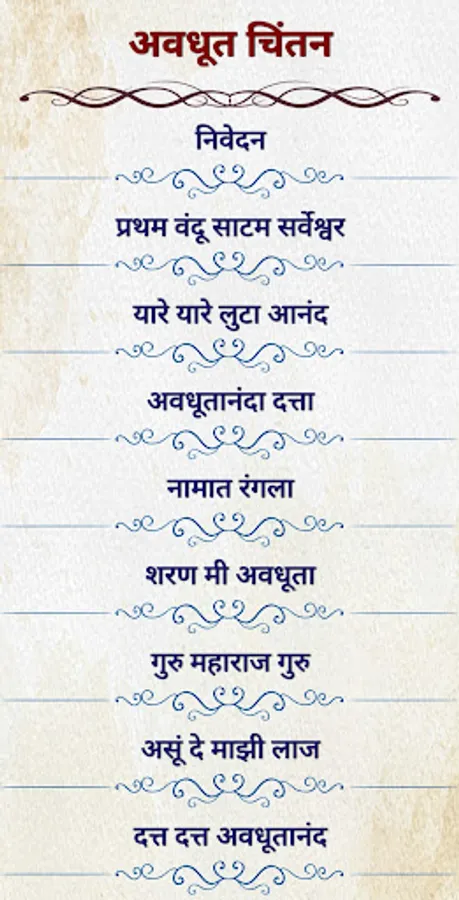 अवधूत चिंतन
निवेदन
प्रथम वंदू साटम सर्वेश्वर
यारे यारे लुटा आनंद
अवधूतानंदा दत्ता
नामात रंगला
शरण मी अवधूता
गुरु महाराज गुरु
असूं दे माझी लाज
दत्त दत्त अवधूतानंद